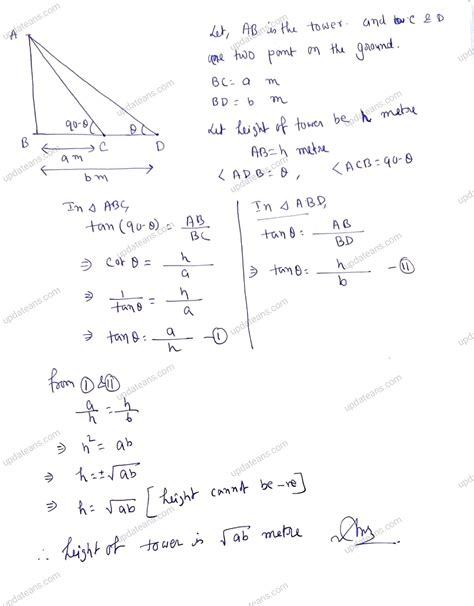 Let, AB is the tower. and C & D
are two point on the ground.
BC = a m
BD = b m
Let height of tower be h metre
AB = h metre
∠ADB = θ, ∠ACB = 90-θ
A
90-θ
θ
B
C
D
a m
b m
In △ ABC,
tan (90-θ) = AB/BC
⇒ cot θ = h/a
⇒ 1/tanθ = h/a
⇒ tanθ = a/h — ①
In △ ABD,
tanθ = AB/BD
⇒ tanθ = h/b — ⑪
from ① & ⑪
a/h = h/b
⇒ h² = ab
⇒ h = ±√ab
⇒ h = √ab [height cannot be -ve]
∴ height of tower is √ab metre Ans
updateans.com